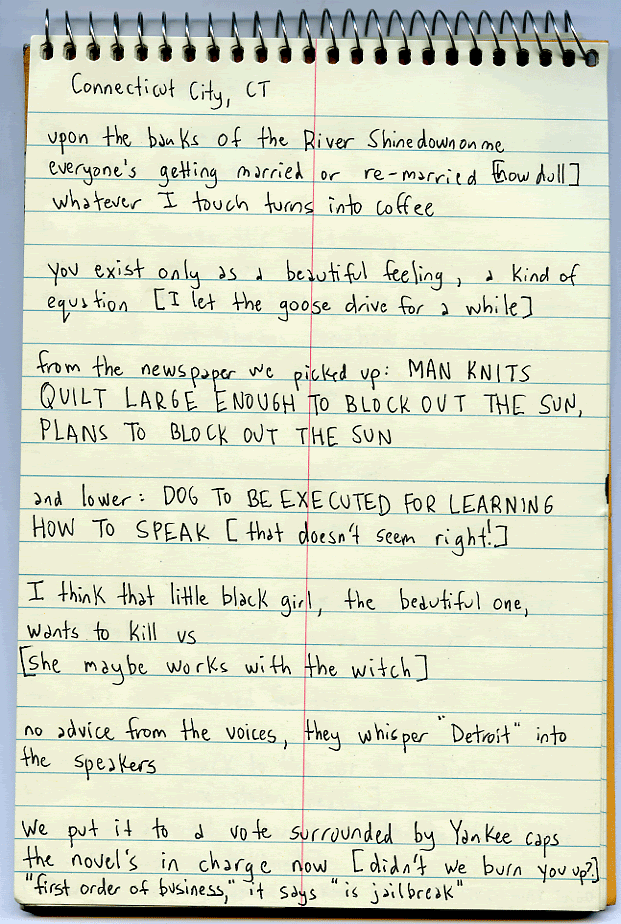 Connecticut City, CT
upon the banks of the River Shinedownonme
everyone's getting married or re-married [how dull]
whatever I touch turns into coffee
you exist only as a beautiful feeling, a kind of
equation [I let the goose drive for a while]
from the newspaper we picked up: MAN KNITS
QUILT LARGE ENOUGH TO BLOCK OUT THE SUN,
PLANS TO BLOCK OUT THE SUN
and lower: DOG TO BE EXECUTED FOR LEARNING
HOW TO SPEAK [that doesn't seem right!]
I think that little black girl, the beautiful one,
wants to kill us
[she maybe works with the witch]
no advice from the voices, they whisper "Detroit" into
the speakers
We put it to a vote surrounded by Yankee caps
the novel's in charge now [didn't we burn you up?]
"first order of business," it says "is jailbreak"